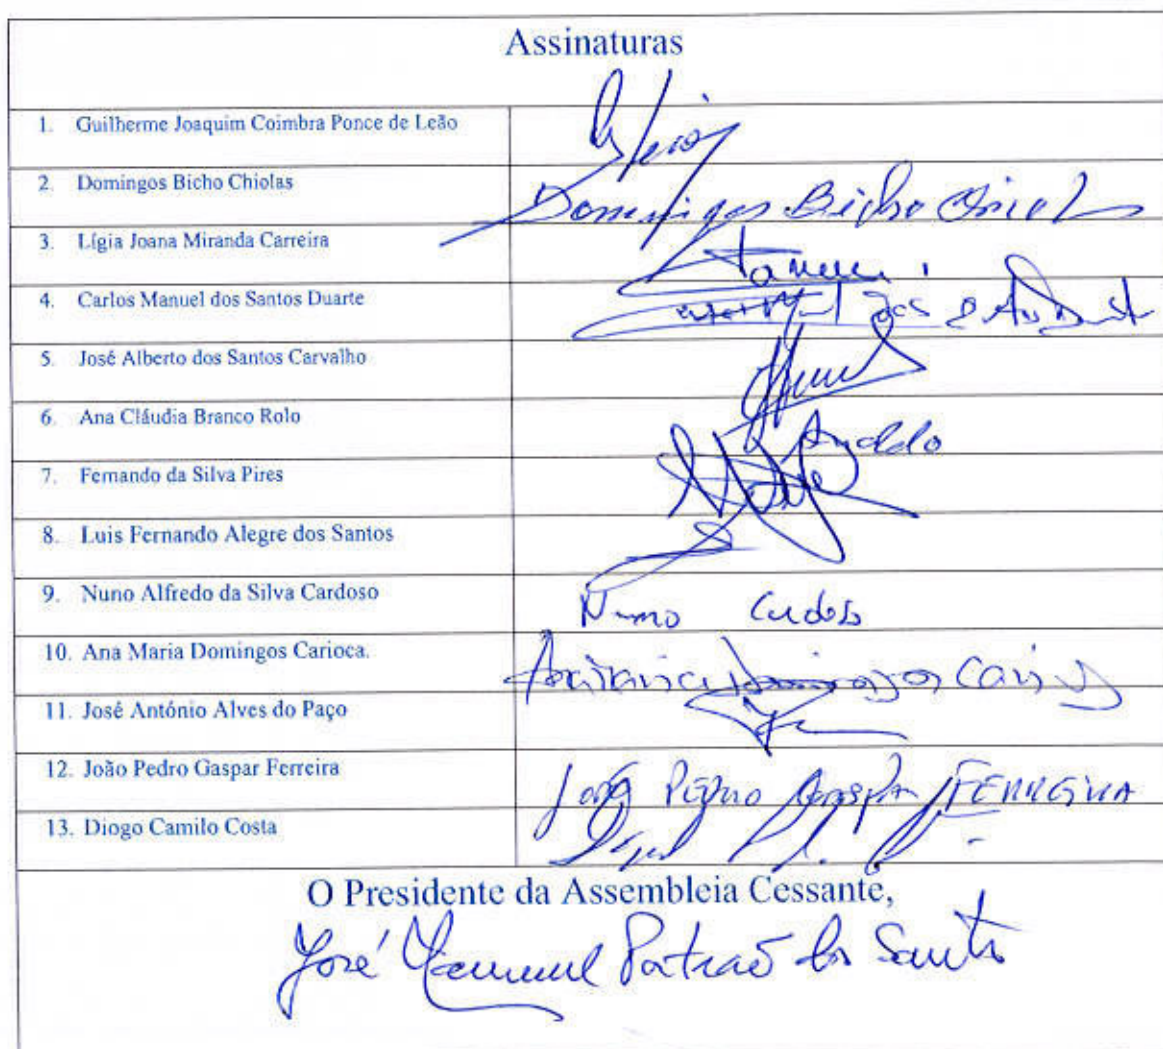 Assinaturas
1. Guilherme Joaquim Coimbra Ponce de Leão
2. Domingos Bicho Chiolas
Domingos Bicho
3. Lígia Joana Miranda Carreira
4. Carlos Manuel dos Santos Duarte
5. José Alberto dos Santos Carvalho
6. Ana Cláudia Branco Rolo
7. Fernando da Silva Pires
8. Luis Fernando Alegre dos Santos
9. Nuno Alfredo da Silva Cardoso
Nuno Cardoso
10. Ana Maria Domingos Carioca.
11. José António Alves do Paço
12. João Pedro Gaspar Ferreira
João PEDRO GASPAR FERREIRA
13. Diogo Camilo Costa
O Presidente da Assembleia Cessante,
José Manuel Patrão dos Santos